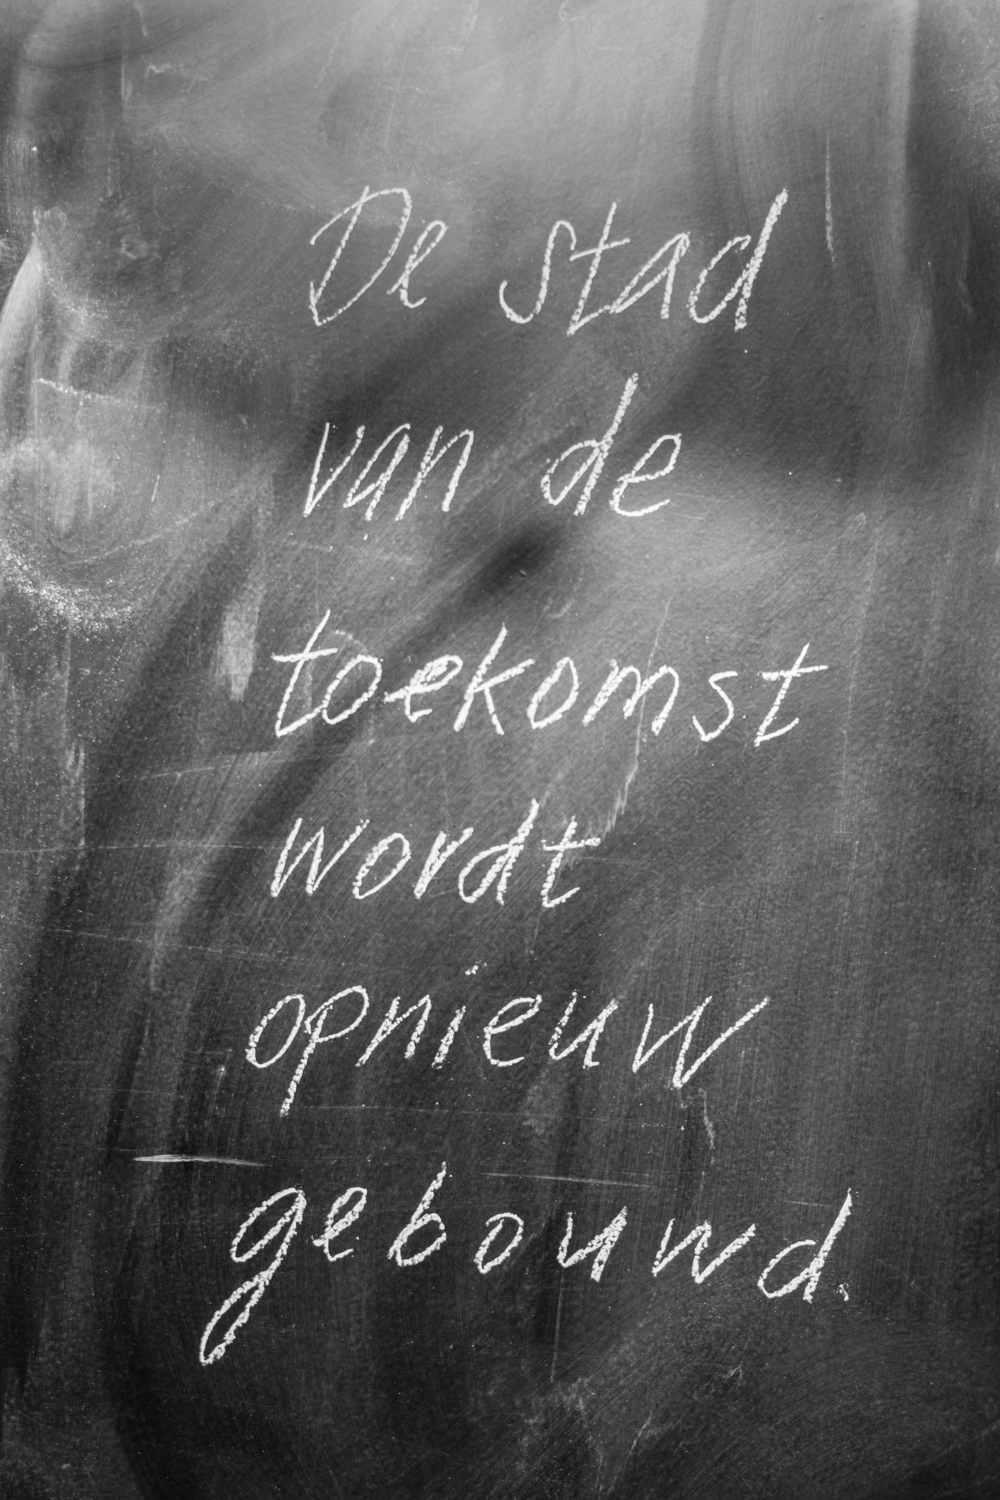 De stad
van de
toekomst
wordt
opnieuw
gebouwd.